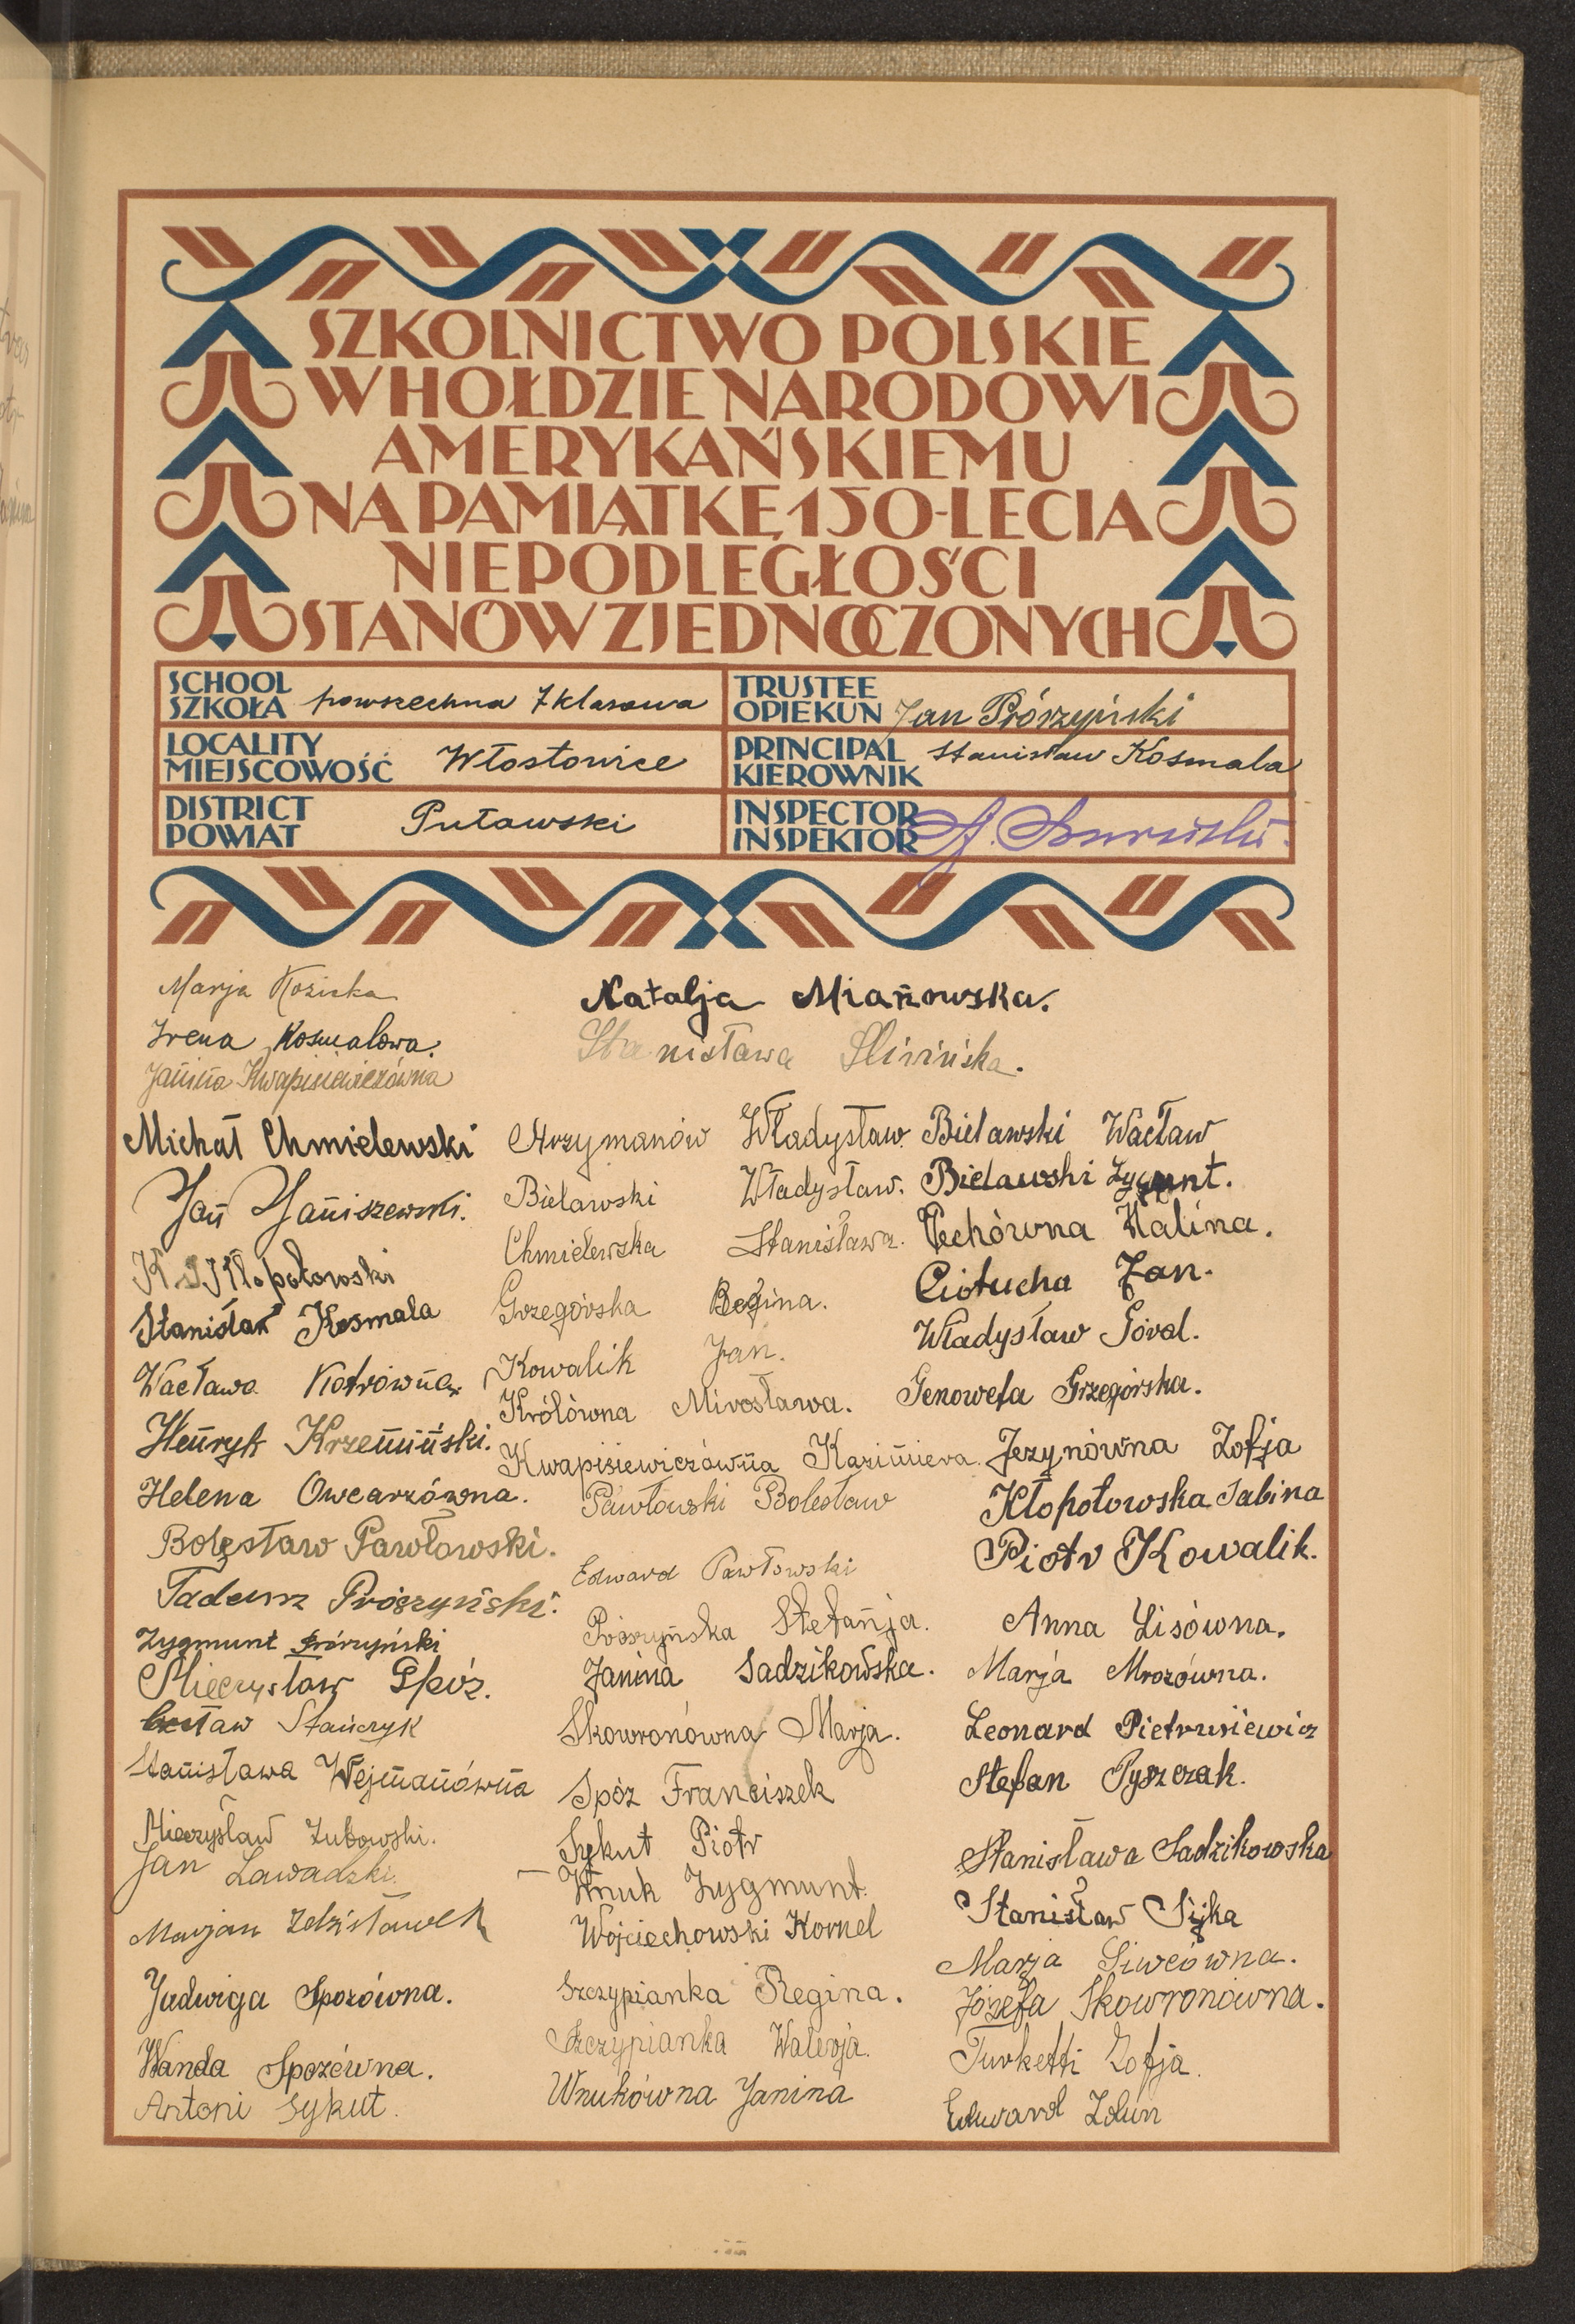 SZKOLNICTWO POLSKIE
W HOŁDZIE NARODOWI
AMERYKAŃSKIEMU
NA PAMIĄTKĘ 150-LECIA
NIEPODLEGŁOŚCI
STANÓW ZJEDNOCZONYCH
SCHOOL
SZKOŁA powszechna 7 klasowa
TRUSTEE
OPIEKUN Jan Prószyński
LOCALITY
MIEJSCOWOŚĆ Włostowice
PRINCIPAL
KIEROWNIK Stanisław Kosmala
DISTRICT
POWIAT Puławski
INSPECTOR
INSPEKTOR
Marja Kozicka
Irena Kosmalowa.
Janina Kwapisiewiczówna
Natalja Mianowska.
Stanisława Śliwińska.
Michał Chmielewski
Jan Janiszewski.
Kłopotowski
Stanisław Kosmala
Wacława Kotrówna.
Henryk Krzemiński.
Helena Owczarzówna.
Bolesław Pawłowski.
Tadeusz Prószyński.
Zygmunt Prószyński
Mieczysław Spóz.
Stańczyk
Stanisława Wejmanówna
Mieczysław Zubowski.
Jan Zawadzki.
Marjan Zdzisławek
Jadwiga Spozówna.
Wanda Spozówna.
Antoni Sykut.
Władysław
Bielawski Władysław.
Chmielewska Stanisława.
Grzegórska Regina.
Kowalik Jan.
Królówna Mirosława.
Kwapisiewiczówna Kazimiera.
Pawłowski Bolesław
Edward Pawłowski
Prószyńska Stefanja.
Janina Sadzikowska.
Skowronówna Marja.
Spóz Franciszek
Sykut Piotr
Wnuk Zygmunt.
Wojciechowski Kornel
Szczypianka Regina.
Szczypianka Walerja.
Wnukówna Janina
Bielawski Wacław
Bielawski Zygmunt.
Halina.
Ciotucha Jan.
Władysław Góral.
Genowefa Grzegórska.
Jezynówna Zofja
Kłopotowska Sabina
Piotr Kowalik.
Anna Lisówna.
Marja Mrozówna.
Leonard Pietrusiewicz
Stefan Pyszczak.
Stanisława Sadzikowska
Stanisław Sijka
Marja Siwcówna.
Józefa Skowronówna.
Turketti Zofja.
Edward Zdun